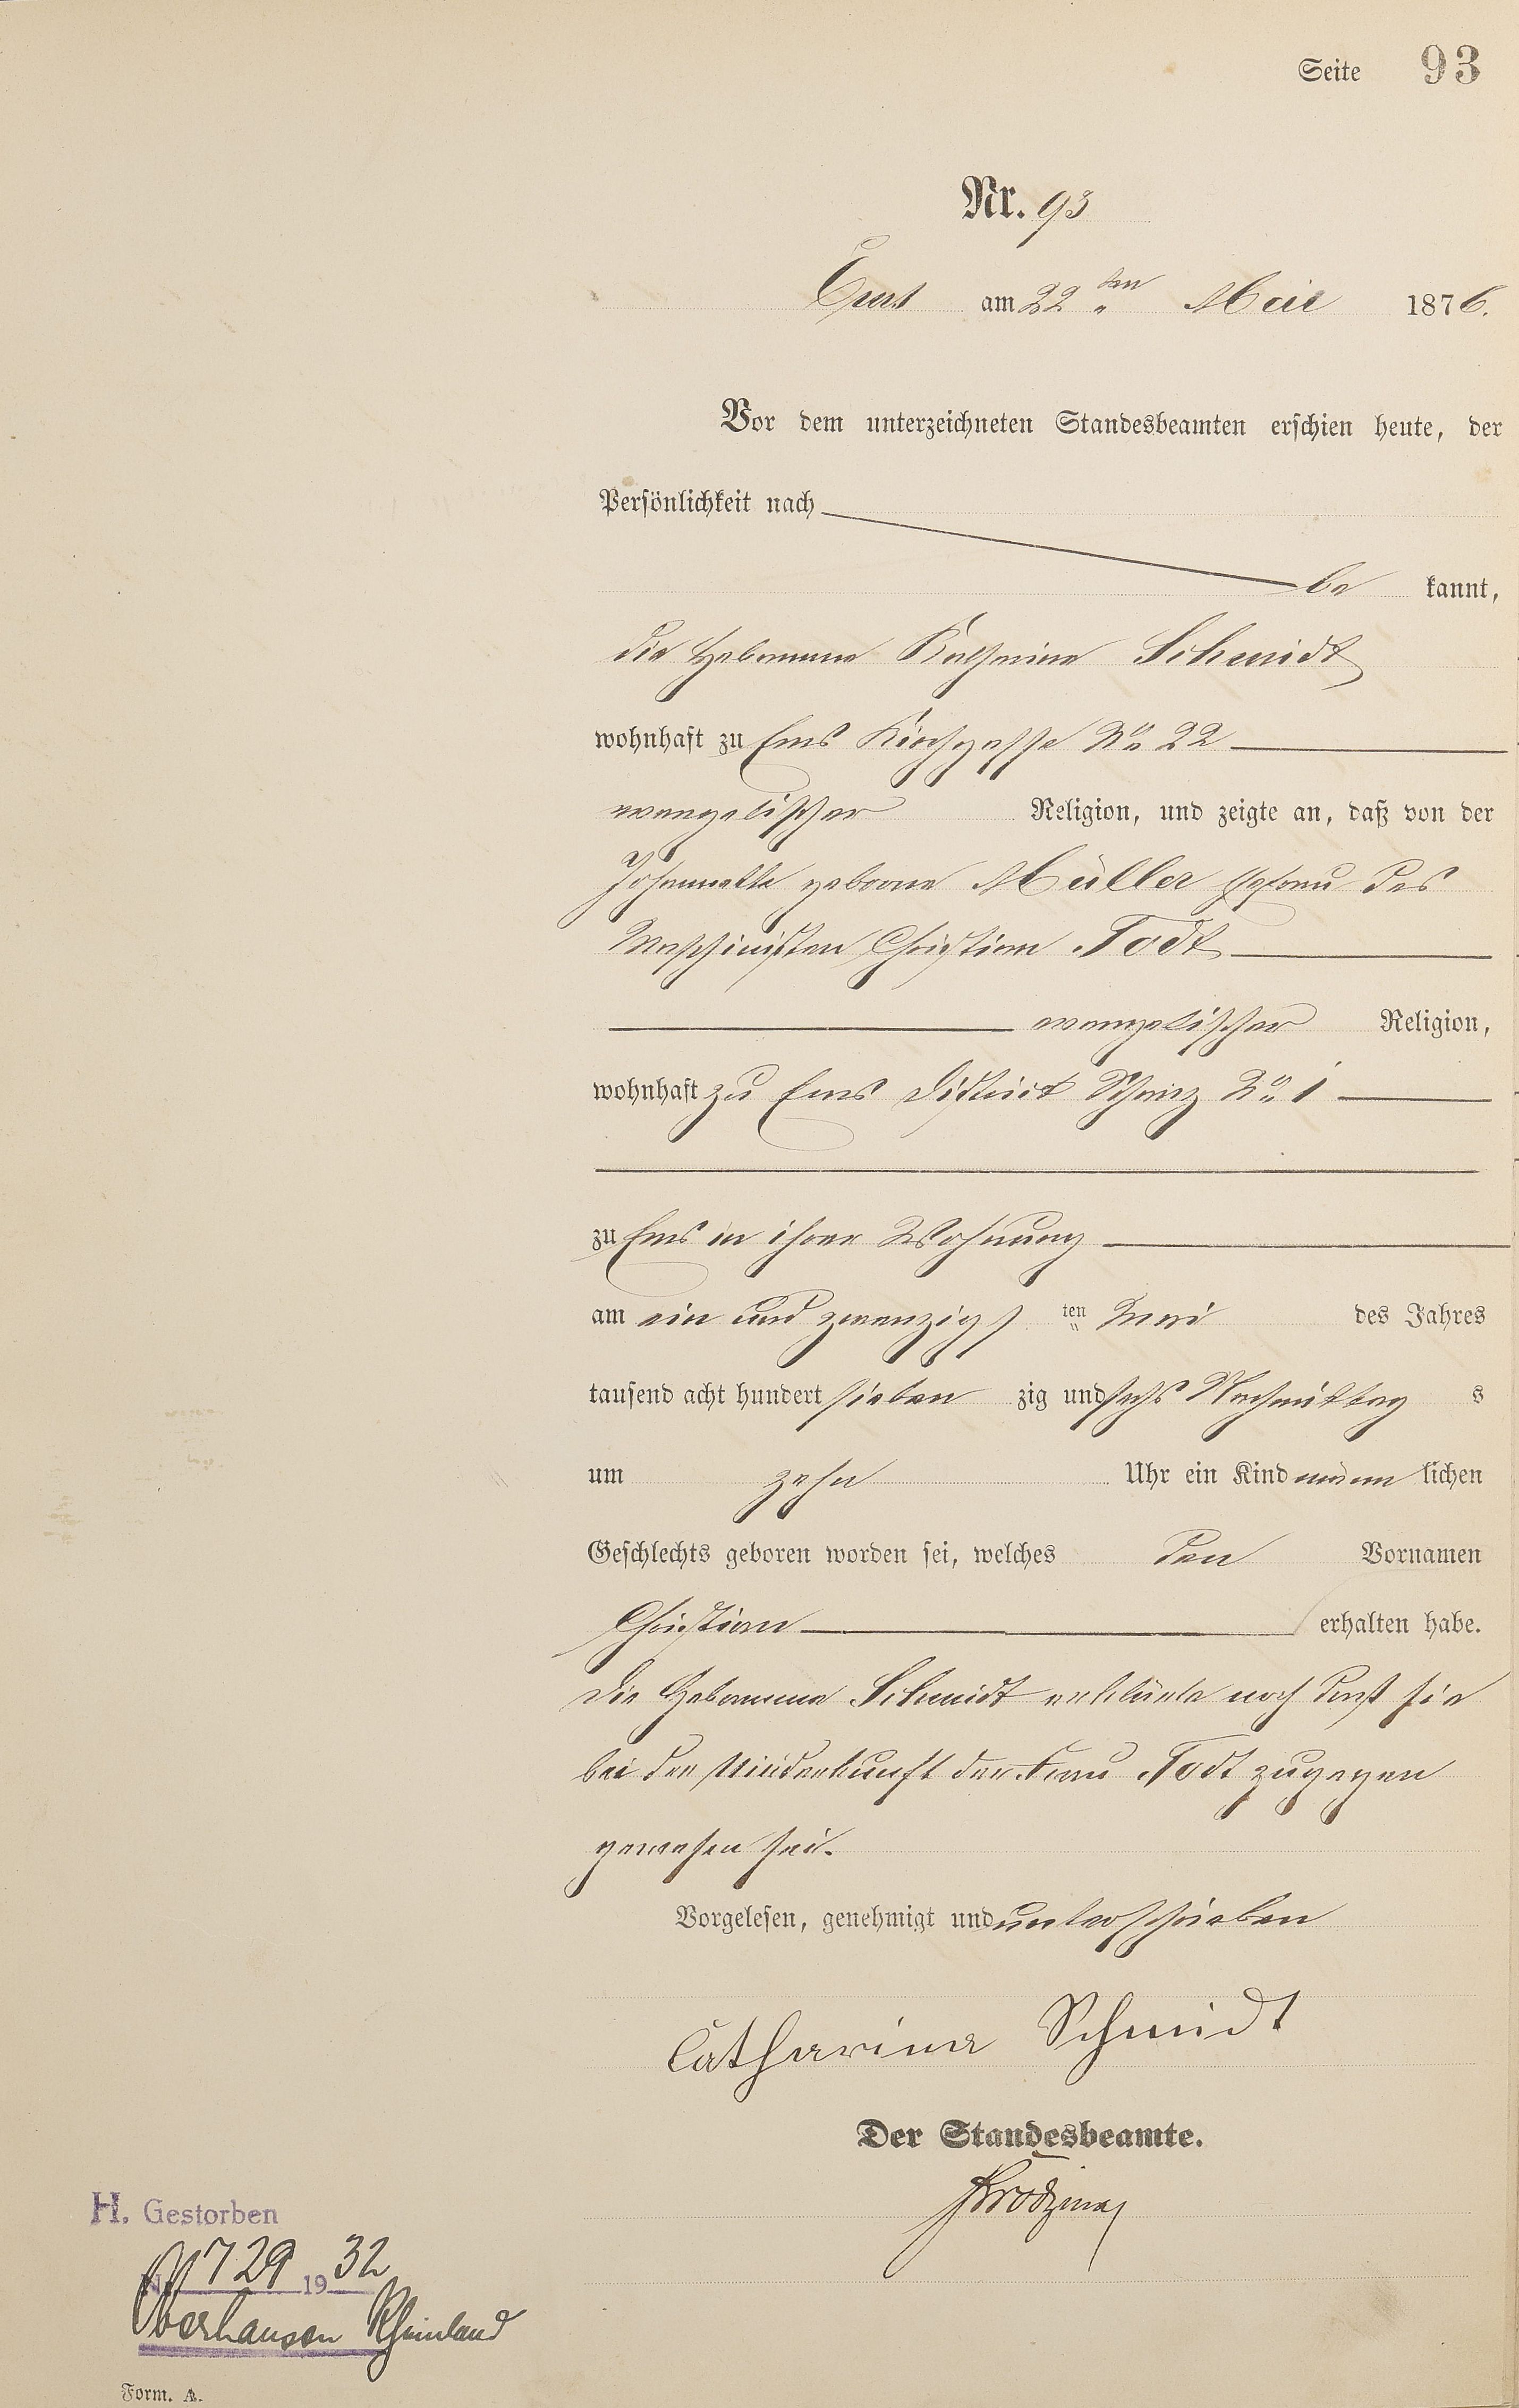 Seite 93
Nr. 93
Ems am 22ten Mai 1876.
Vor dem unterzeichneten Standesbeamten erschien heute, der
Persönlichkeit nach
be kannt,
die Hebamme Katharina Schmidt
wohnhaft zu Ems Kirchgasse No 22
evangelischer Religion, und zeigte an, daß von der
Johannette geborne Müller Ehefrau des
Maschinisten Christian Todt
evangelischer Religion,
wohnhaft zu Ems District No 1
zu Ems in ihrer Wohnung
am ein und zwanzigs ten Mai des Jahres
tausend acht hundert sieben zig und sechs Nachmittag s
um zehn Uhr ein Kind männ lichen
Geschlechts geboren worden sei, welches den Vornamen
Christian erhalten habe.
Die Hebamme Schmidt erklärte noch daß sie
bei der Niederkunft der Frau Todt zugegen
gewesen sei.
Vorgelesen, genehmigt und unterschrieben
Catharina Schmidt
Der Standesbeamte.
H. Gestorben
729 1932
Oberhausen Rheinland
Form. A.